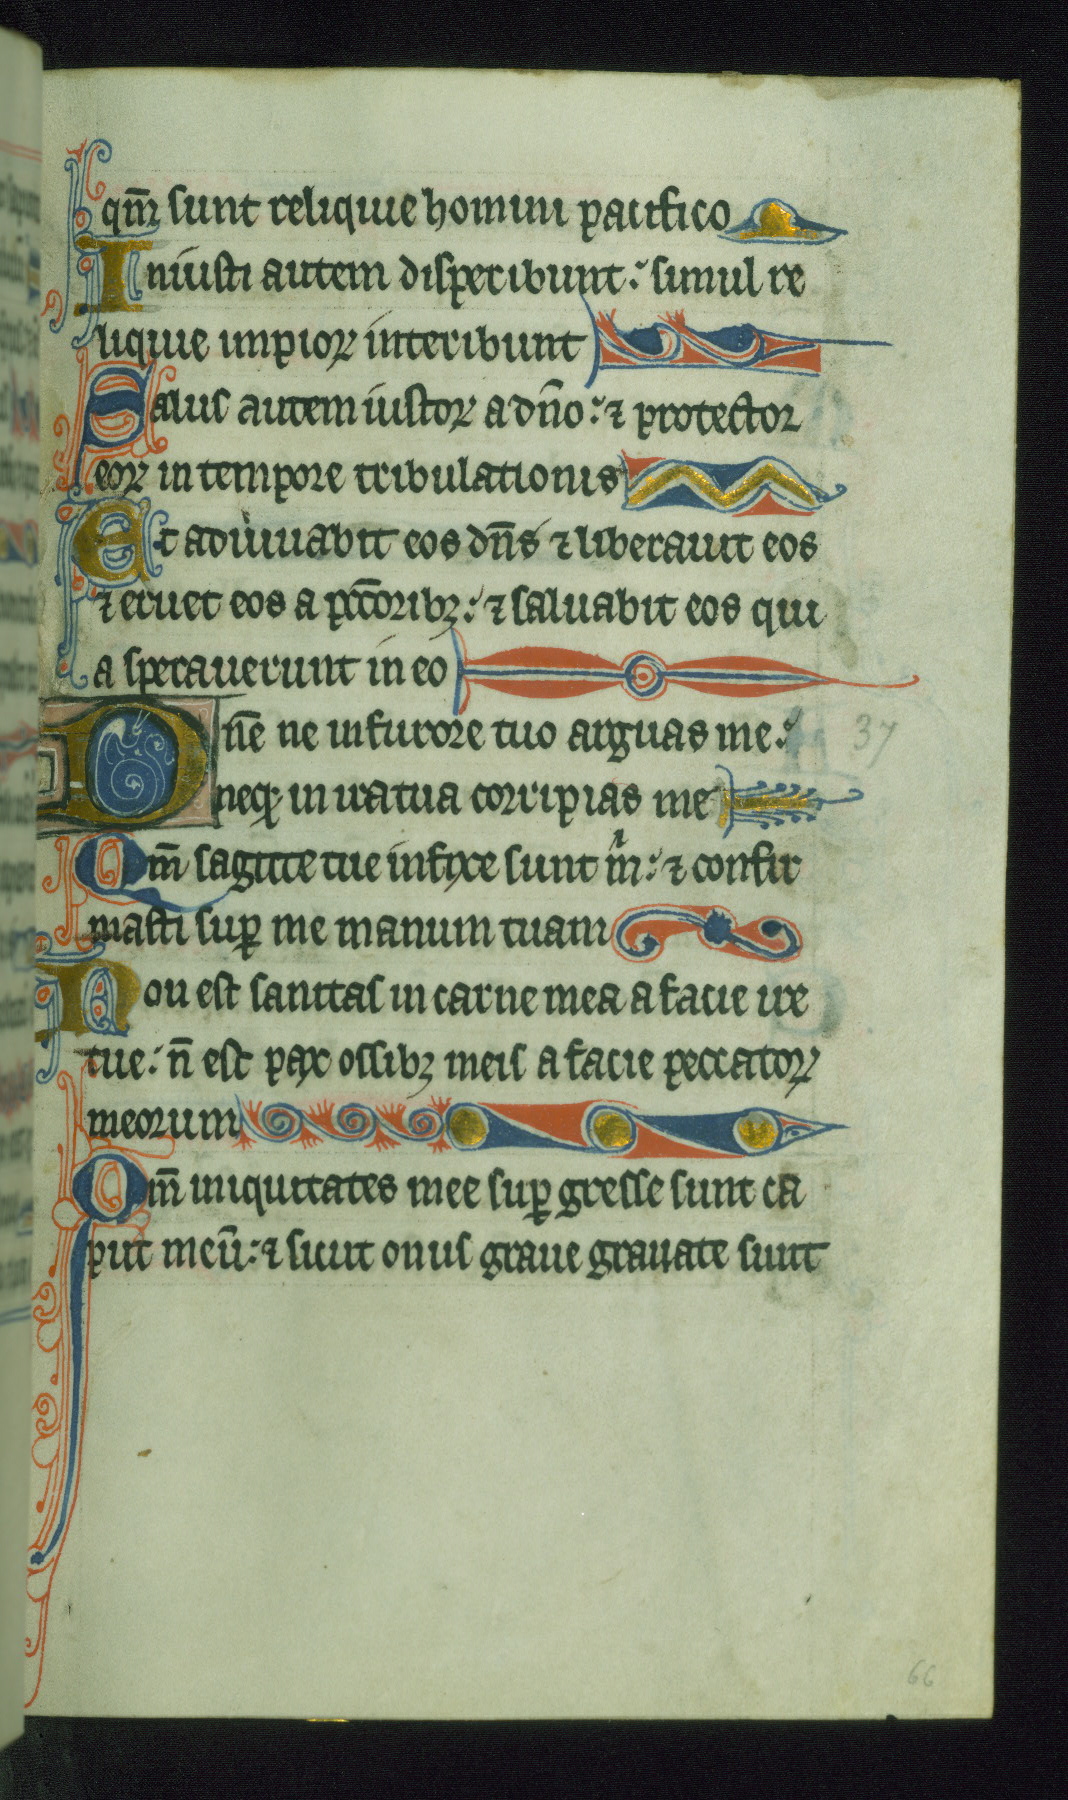 qm̄ sunt relique homini pacifico
Iniusti autem disperibunt: simul re
liquie impioꝝ interibunt
Salus autem iustoꝝ a dn̄o: ⁊ protector
eoꝝ in tempore tribulationis
Et adiuuabit eos dn̄s ⁊ liberauit eos
⁊ eruet eos a pcc̄oribꝫ: ⁊ saluabit eos qui
a sperauerunt in eo
Dn̄e ne in furore tuo arguas me: 37
neqꝫ in ira tua corripias me
Qm̄ sagitte tue infixe sunt m̍: ⁊ confir
masti suꝑ me manum tuam
Non est sanitas in carne mea a facie ire
tue: n̄ est pax ossibꝫ meis a facie peccatoꝝ
meorum
Qm̄ iniquitates mee suꝑ gresse sunt ca
put meū: ⁊ sicut onus graue grauate sunt
66